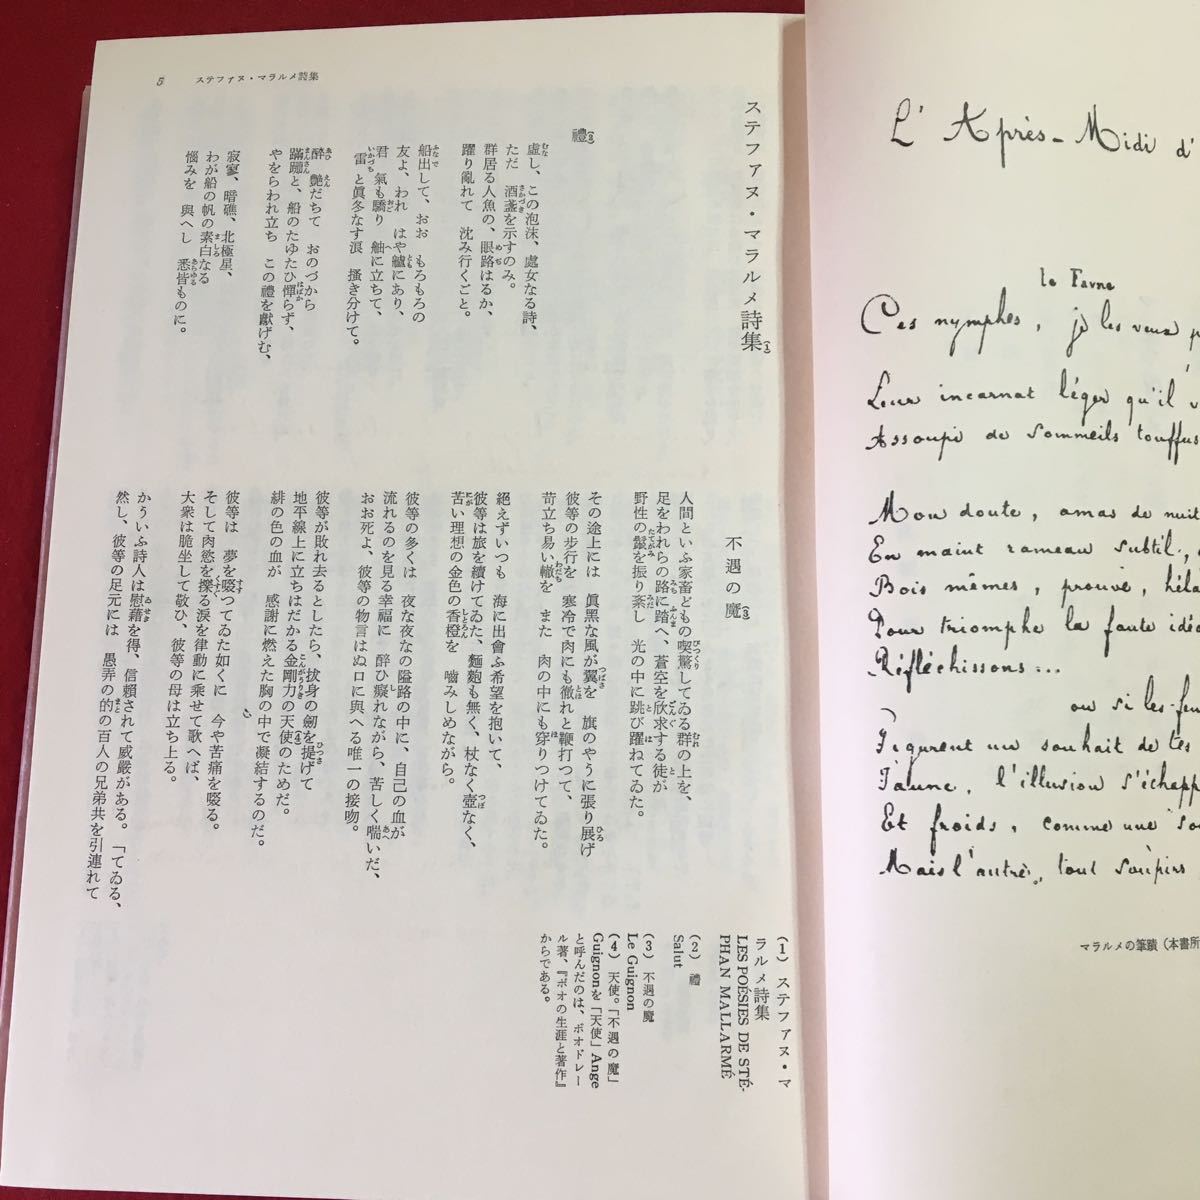 5 ステファヌ・マラルメ詩集
ステファヌ・マラルメ詩集(1)
禮(2)
虛し、この泡沫、處女なる詩、
ただ 酒盞を示すのみ。
群居る人魚の、眼路はるか、
躍り亂れて 沈み行くごと。
船出して、おお もろもろの
友よ、われ はや艫にあり、
君 氣も驕り 舳に立ちて、
雷と眞冬なす浪 搔き分けて。
醉 艶だちて おのづから
蹣跚と、船のたゆたひ憚らず、
やをらわれ立ち この禮を獻げむ、
寂寥、暗礁、北極星、
わが船の帆の素白なる
惱みを 與へし 悉皆ものに。
不遇の魔(3)
人間といふ家畜どもの喫驚してゐる群の上を、
足をわれらの路に踏へ、蒼空を欣求する徒が
野性の鬣を振り亂し 光の中に跳び躍ねてゐた。
その途上には 眞黑な風が翼を 旗のやうに張り展げ
彼等の步行を 寒冷で肉にも徹れと鞭打つて、
苛立ち易い轍を また 肉の中にも穿りつけてゐた。
絕えずいつも 海に出會ふ希望を抱いて、
彼等は旅を續けてゐた、麵麭も無く、杖なく壺なく、
苦い理想の金色の香橙を 嚙みしめながら。
彼等の多くは 夜な夜なの隘路の中に、自己の血が
流れるのを見る幸福に 醉ひ癡れながら、苦しく喘いだ、
おお死よ、彼等の物言はぬ口に與へる唯一の接吻。
彼等が敗れ去るとしたら、拔身の劒を提げて
地平線上に立ちはだかる金剛力の天使(4)のためだ。
緋の色の血が 感謝に燃えた胸の中で凝結するのだ。
彼等は 夢を啜つてゐた如くに 今や苦痛を啜る。
そして肉慾を擽る淚を律動に乘せて歌へば、
大衆は脆坐して敬ひ、彼等の母は立ち上る。
かういふ詩人は慰藉を得、信賴されて威嚴がある。「てゐる、
然し、彼等の足元には 愚弄の的の百人の兄弟共を引連れて
(1) ステファヌ・マ
ラルメ詩集
LES POÉSIES DE STÉ-
PHAN MALLARMÉ
(2) 禮
Salut
(3) 不遇の魔
Le Guignon
(4) 天使。「不遇の魔」
Guignonを「天使」Ange
と呼んだのは、ボオドレー
ル著、『ポオの生涯と著作』
からである。
L'Après-Midi d'
le Faune
Ces nymphes, je les veux p
Leur incarnat léger qu'il v
Assoupi de sommeils touffus
Mon doute, amas de nuit
En maint rameau subtil,
Bois mêmes, prouve, héla
Pour triomphe la faute idé
Réfléchissons...
ou si les fem
Figurent un souhait de tes
Faune, l'illusion s'échapp
Et froids, comme une sou
Mais l'autre, tout soupirs
マラルメの筆蹟（本書所